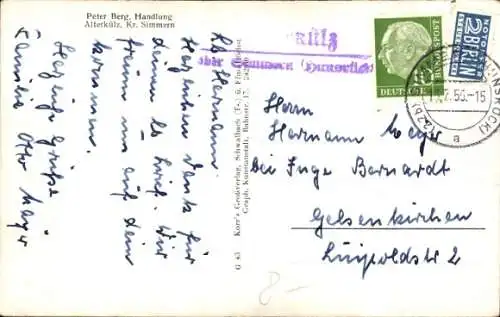 Peter Berg, Handlung
Alterkülz, Kr. Simmern
Lb. Hermann.
Herzlichen Dank für
deinen lb. Brief. Wir
freuen uns auf dein
kommen.
Herzliche Grüße
Familie Otto Mayer
G 43 Korr's Großverlag, Schwalbach
Graph. Kunstanstalt, Bahnstr. 17
külz
über Simmern (Hunsrück)
DEUTSCHE BUNDESPOST
10
NOTOPFER
2 BERLIN
STEUERMARKE
.7.56.-15
a
Herrn
Hermann Mayer
Bei Inge Bernardt
Gelsenkirchen
Luipoldstr 2
8-